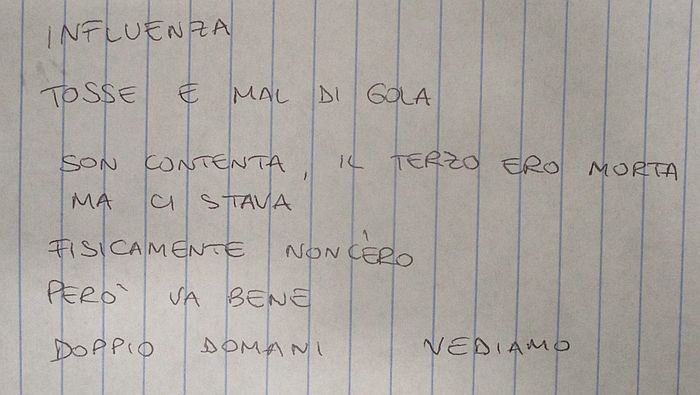 INFLUENZA
TOSSE E MAL DI GOLA
SON CONTENTA, IL TERZO ERO MORTA
MA CI STAVA
FISICAMENTE NON C'ERO
PERÒ VA BENE
DOPPIO DOMANI VEDIAMO